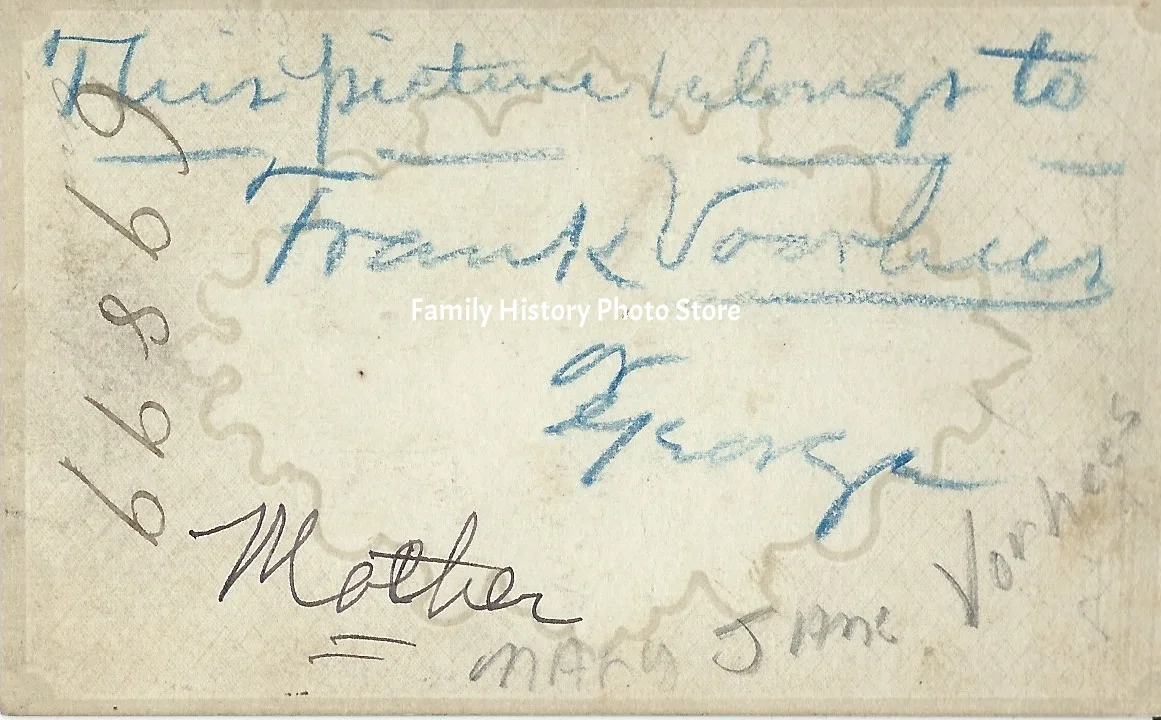 This picture belongs to
Frank Voorhees
Family History Photo Store
George
Mother
MARY JANE Vorhees
69899